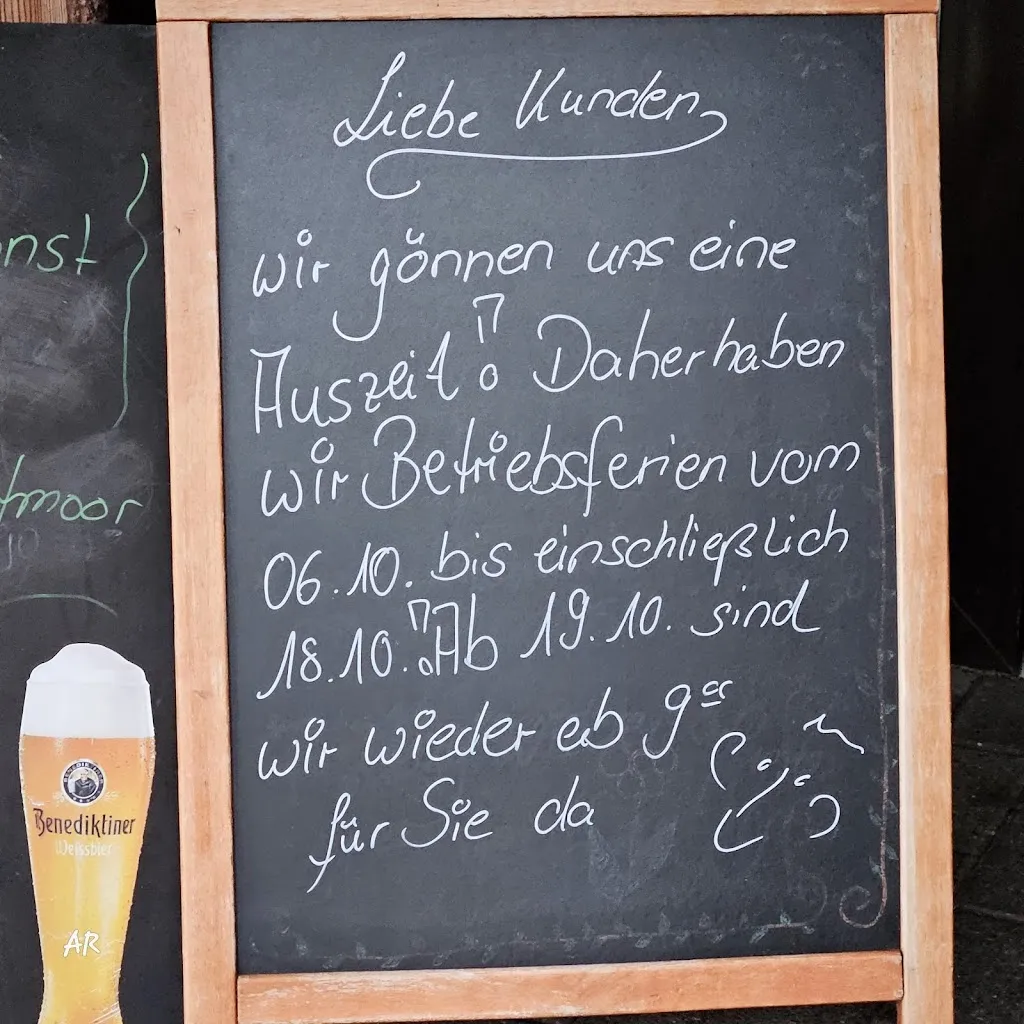 Liebe Kunden,
wir gönnen uns eine
Auszeit! Daher haben
wir Betriebsferien vom
06.10. bis einschließlich
18.10.! Ab 19.10. sind
wir wieder ab 9
für Sie da
tmoor
10
Benediktiner
Weissbier
AR